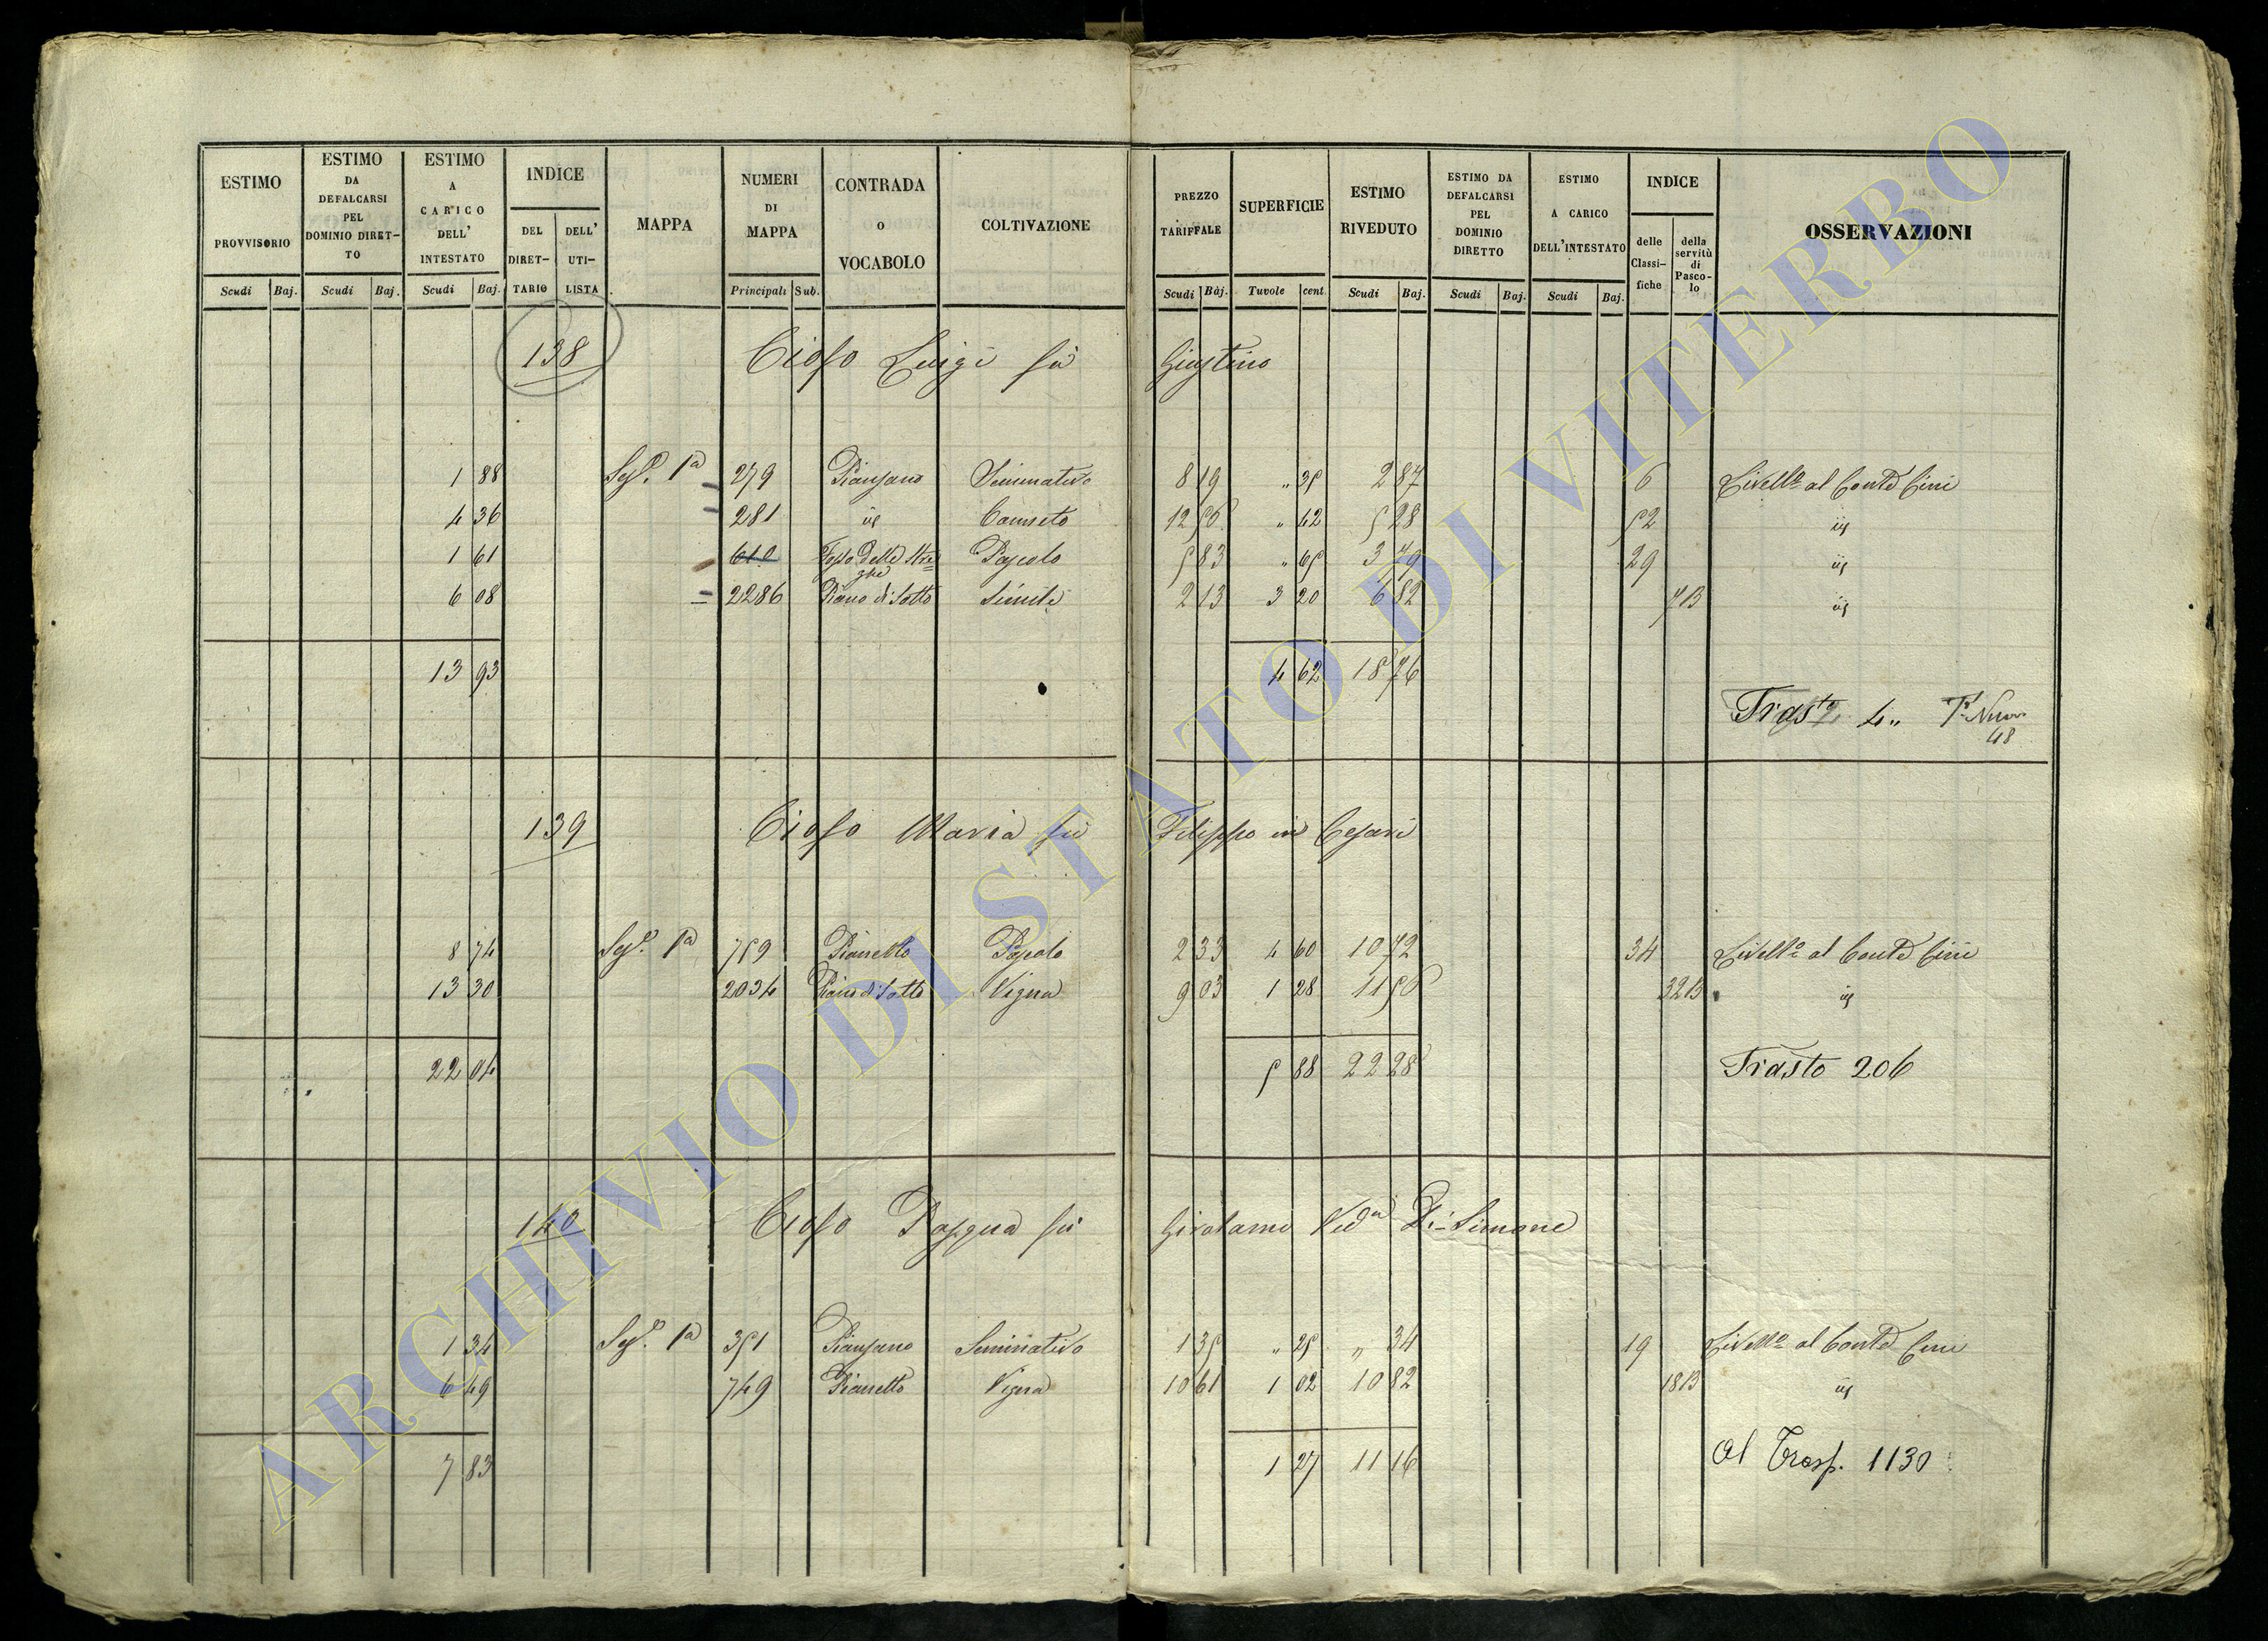 ESTIMO PROVVISORIO
ESTIMO DA DEFALCARSI PEL DOMINIO DIRET-TO
ESTIMO A CARICO DELL' INTESTATO
INDICE
DEL DIRET-TARIO
DELL' UTI-LISTA
MAPPA
NUMERI DI MAPPA
CONTRADA O VOCABOLO
COLTIVAZIONE
PREZZO TARIFFALE
SUPERFICIE
ESTIMO RIVEDUTO
ESTIMO DA DEFALCARSI PEL DOMINIO DIRETTO
ESTIMO A CARICO DELL'INTESTATO
INDICE
delle Classi-fiche
della servitù di Pasco-lo
OSSERVAZIONI
Scudi Baj. Scudi Baj. Scudi Baj. Principali Sub. Scudi Baj. Tavole cent. Scudi Baj. Scudi Baj. Scudi Baj.
138 Ciofo Luigi fù Giustino
1 88 Sez.e 1a 279 Piansano Seminativo 8 19 " 35 2 87 6 Livello al Conte Cini
4 36 281 id Canneto 12 56 " 42 5 28 52 id
1 61 610 Fosso delle Streghe Pascolo 5 83 " 65 3 79 29 id
6 08 2286 Piano di Sotto Simile 2 13 3 20 6 82 7B id
13 93 4 62 18 76
Trasto 4" P. Nuov. 48
139 Ciofo Maria fù Filippo in Cesari
8 74 Sez.e 1a 759 Pianetto Pascolo 2 33 4 60 10 72 34 Livello al Conte Cini
13 30 2034 Piano di Sotto Vigna 9 03 1 28 11 56 32B id
22 04 5 88 22 28
Trasto 206
140 Ciofo Pasqua fù Girolamo Veda Di-Simone
1 34 Sez.e 1a 351 Piansano Seminativo 1 35 " 25 " 34 19 Livello al Conte Cini
6 49 749 Pianetto Vigna 10 61 1 02 10 82 18B id
7 83 1 27 11 16
Al Trasp. 1130
ARCHIVIO DI STATO DI VITERBO